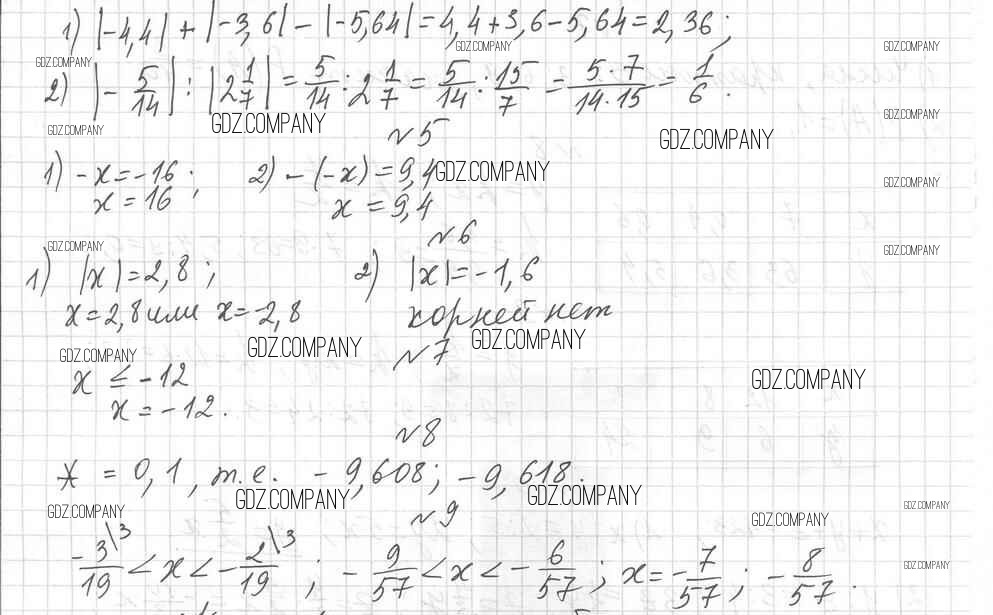 1) |-4,4| + |-3,6| - |-5,64| = 4,4 + 3,6 - 5,64 = 2,36;
GDZ.COMPANY GDZ.COMPANY
GDZ.COMPANY
2) |- 5/14| : |2 1/7| = 5/14 : 2 1/7 = 5/14 · 15/7 = 5·7/14·15 = 1/6.
GDZ.COMPANY GDZ.COMPANY
GDZ.COMPANY GDZ.COMPANY
№5
1) -x = -16; 2) -(-x) = 9,4 GDZ.COMPANY
GDZ.COMPANY
x = 16 x = 9,4
№6
GDZ.COMPANY GDZ.COMPANY
1) |x| = 2,8; 2) |x| = -1,6
x = 2,8 или x = -2,8 корней нет
GDZ.COMPANY GDZ.COMPANY GDZ.COMPANY
№7
x ≤ -12 GDZ.COMPANY
x = -12.
№8
* = 0,1, т.е. -9,608; -9,618.
GDZ.COMPANY GDZ.COMPANY
GDZ.COMPANY GDZ.COMPANY GDZ.COMPANY
№9
-3\3/19 < x < -2\3/19; -9/57 < x < -6/57; x = -7/57; -8/57.
GDZ.COMPANY